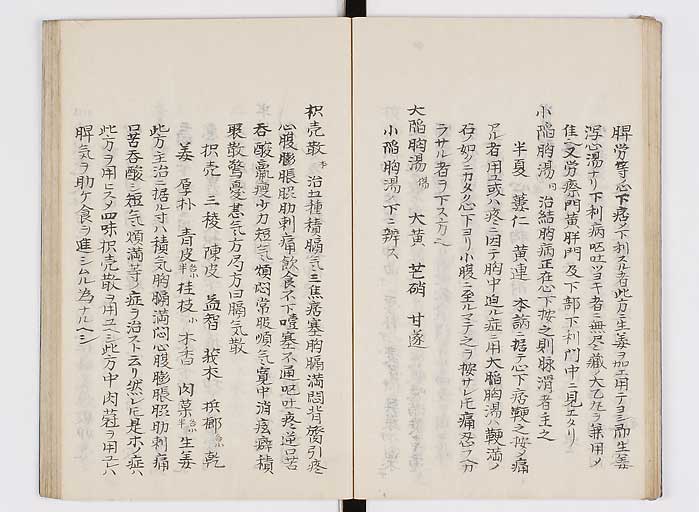 脾労等心下痞シ下利スル者此方ニ生姜ヲ加エ用テヨシ而生姜
瀉心湯ナリ下利病嘔吐ツヨキ者ニ無尽蔵ノ大乙丸ヲ兼用メ
佳シ又労療門黄胖門及下部下利門中ニ見エタリ
小陥胸湯 治結胸病正在心下按之則脉滑者主之
半夏 蔞仁 黄連 本論ニ据テ心下痞鞕之按メ痛
アル者用五或ハ痰ニ因テ胸中迫ル症ニ用大陥胸湯ハ鞕満メ
石ノ如クニカタク心下ヨリ小腹ニ至ルマテ之ヲ按サレ𪜈痛忍フ可
ラサル者ヲ下ス方也
大陥胸湯 大黄 芒硝 甘遂
小陥胸湯ノ下ニ辨ス
枳壳散 治五種積膈気三焦痞塞胸膈満悶背膂引疼
心腹膨脹脇肋刺痛飲食不下噎塞不通嘔吐痰逆口苦
呑酸羸痩少力短気煩悶常服順気寛中消痃癖積
聚散驚憂恚気方局方曰膈気散
枳壳 三稜 陳皮 益智 莪朮 梹郎 乾
姜 厚朴 青皮 桂枝 木香 肉菓 生姜
此方主治ニ据ル寸ハ積気胸膈満悶心腹膨脹脇肋刺痛
口苦呑酸シ短気煩満等ノ症ヲ治スト云リ然レ𪜈是ホノ症ハ
此方ヲ用ヒスメ四味枳壳散ヲ用ユヘシ此方中肉蔲ヲ用ユルハ
脾気ヲ助ケ食ヲ進シムル為ナルヘシ